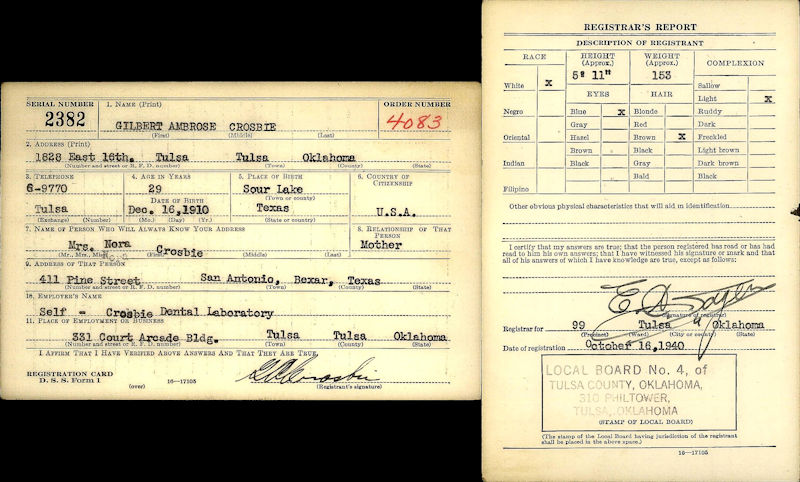 SERIAL NUMBER
1. NAME (Print)
ORDER NUMBER
2382
GILBERT AMBROSE CROSBIE
4083
(First) (Middle) (Last)
2. ADDRESS (Print)
1828 East 16th. Tulsa Tulsa Oklahoma
(Number and street or R. F. D. number) (Town) (County) (State)
3. TELEPHONE
4. AGE IN YEARS
5. PLACE OF BIRTH
6. COUNTRY OF CITIZENSHIP
6-9770
29
Sour Lake
(Town or county)
DATE OF BIRTH
Tulsa
Dec. 16, 1910
Texas
U.S.A.
(Exchange) (Number)
(Mo.) (Day) (Yr.)
(State or country)
7. NAME OF PERSON WHO WILL ALWAYS KNOW YOUR ADDRESS
8. RELATIONSHIP OF THAT PERSON
Mrs. Nora Crosbie
Mother
(Mr., Mrs., Miss) (First) (Middle) (Last)
9. ADDRESS OF THAT PERSON
411 Pine Street San Antonio, Bexar, Texas
(Number and street or R. F. D. number) (Town) (County) (State)
10. EMPLOYER'S NAME
Self - Crosbie Dental Laboratory
11. PLACE OF EMPLOYMENT OR BUSINESS
331 Court Arcade Bldg. Tulsa Tulsa Oklahoma
(Number and street or R. F. D. number) (Town) (County) (State)
I AFFIRM THAT I HAVE VERIFIED ABOVE ANSWERS AND THAT THEY ARE TRUE.
REGISTRATION CARD
D. S. S. Form 1
(over)
16—17105
G A Crosbie
(Registrant's signature)
REGISTRAR'S REPORT
DESCRIPTION OF REGISTRANT
RACE
HEIGHT (Approx.)
WEIGHT (Approx.)
COMPLEXION
5' 11"
153
White X
EYES
HAIR
Sallow
Light X
Negro
Blue X
Blonde
Ruddy
Gray
Red
Dark
Oriental
Hazel
Brown X
Freckled
Brown
Black
Light brown
Indian
Black
Gray
Dark brown
Bald
Black
Filipino
Other obvious physical characteristics that will aid in identification
I certify that my answers are true; that the person registered has read or has had
read to him his own answers; that I have witnessed his signature or mark and that
all of his answers of which I have knowledge are true, except as follows:
(Signature of registrar)
Registrar for 99 Tulsa Oklahoma
(Precinct) (Ward) (City or county) (State)
Date of registration October 16, 1940
LOCAL BOARD No. 4, of
TULSA COUNTY, OKLAHOMA,
310 PHILTOWER,
TULSA, OKLAHOMA
(STAMP OF LOCAL BOARD)
(The stamp of the Local Board having jurisdiction of the registrant
shall be placed in the above space.)
16—17105